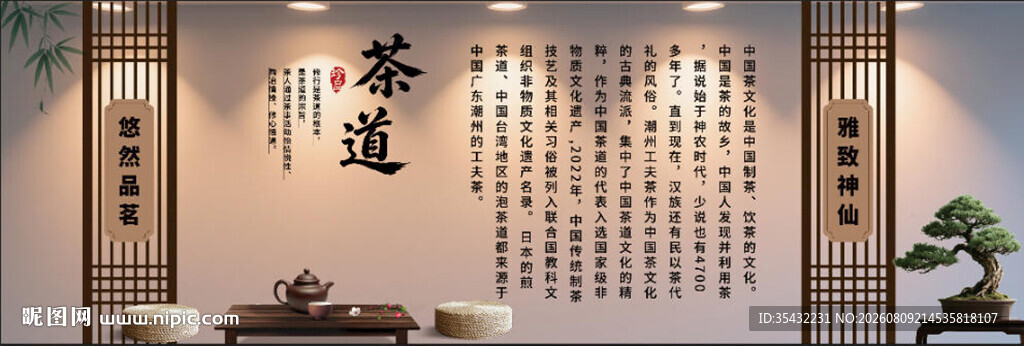 悠然品茗
茶道
珍品
修行是茶道的根本，
是茶道的宗旨，
茶人通过茶事活动怡情悦性、
陶冶情操、修心悟道。
中国茶文化是中国制茶、饮茶的文化。
中国是茶的故乡，中国人发现并利用茶
，据说始于神农时代，少说也有4700
多年了。直到现在，汉族还有民以茶代
礼的风俗。潮州工夫茶作为中国茶文化
的古典流派，集中了中国茶道文化的精
粹，作为中国茶道的代表入选国家级非
物质文化遗产,2022年，中国传统制茶
技艺及其相关习俗被列入联合国教科文
组织非物质文化遗产名录。 日本的煎
茶道、中国台湾地区的泡茶道都来源于
中国广东潮州的工夫茶。
雅致神仙
昵图网 www.nipic.com
ID:35432231 NO:20260809214535818107